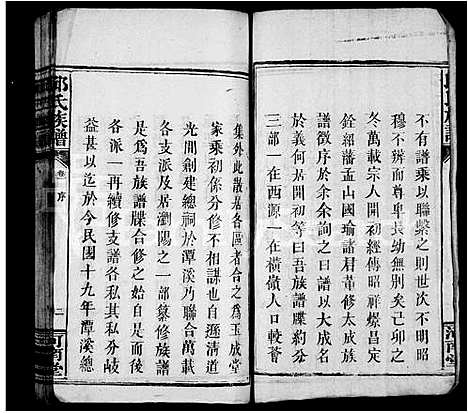 不有譜乘以聯繫之則世次不明昭
穆不辨而尊卑長幼無紀矣己卯之
冬萬載宗人開初經傳昭祥煥昌定
銓紹藩孟山國瑜諸君董修族
譜徵序於余余詢之曰譜大成名
於義何居開初等曰吾族譜牒約分
三部一在西源一在橫嶺人口特
集外此散居各區者合之為玉成堂
家乘初係分修不同自遜清
光間創建總祠於潭溪乃聯合萬載
各支派及居瀏陽之一部纂修族譜
是為吾族譜牒合修之始自是而後
各派一再續修支譜各私其私分歧
益甚以迄於今民國十九年潭溪總
氏族譜
卷
序
二
河南堂